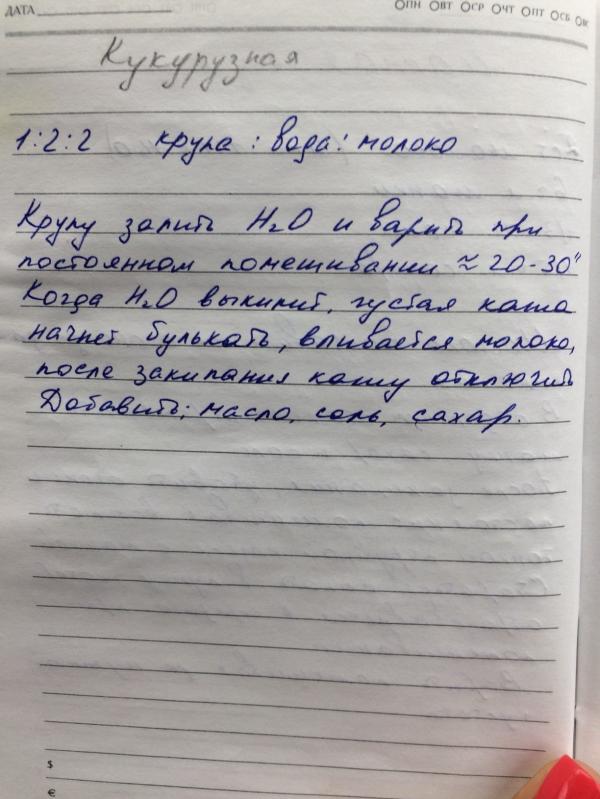 ДАТА ПН ВТ СР ЧТ ПТ СБ ВС
Кукурузная
1:2:2 крупа : вода : молоко
Крупу залить H₂O и варить при
постоянном помешивании ≈ 20-30"
Когда H₂O выкипит, густая каша
начнет булькать, вливается молоко,
после закипания кашу отключить
Добавить: масло, соль, сахар.
$
€